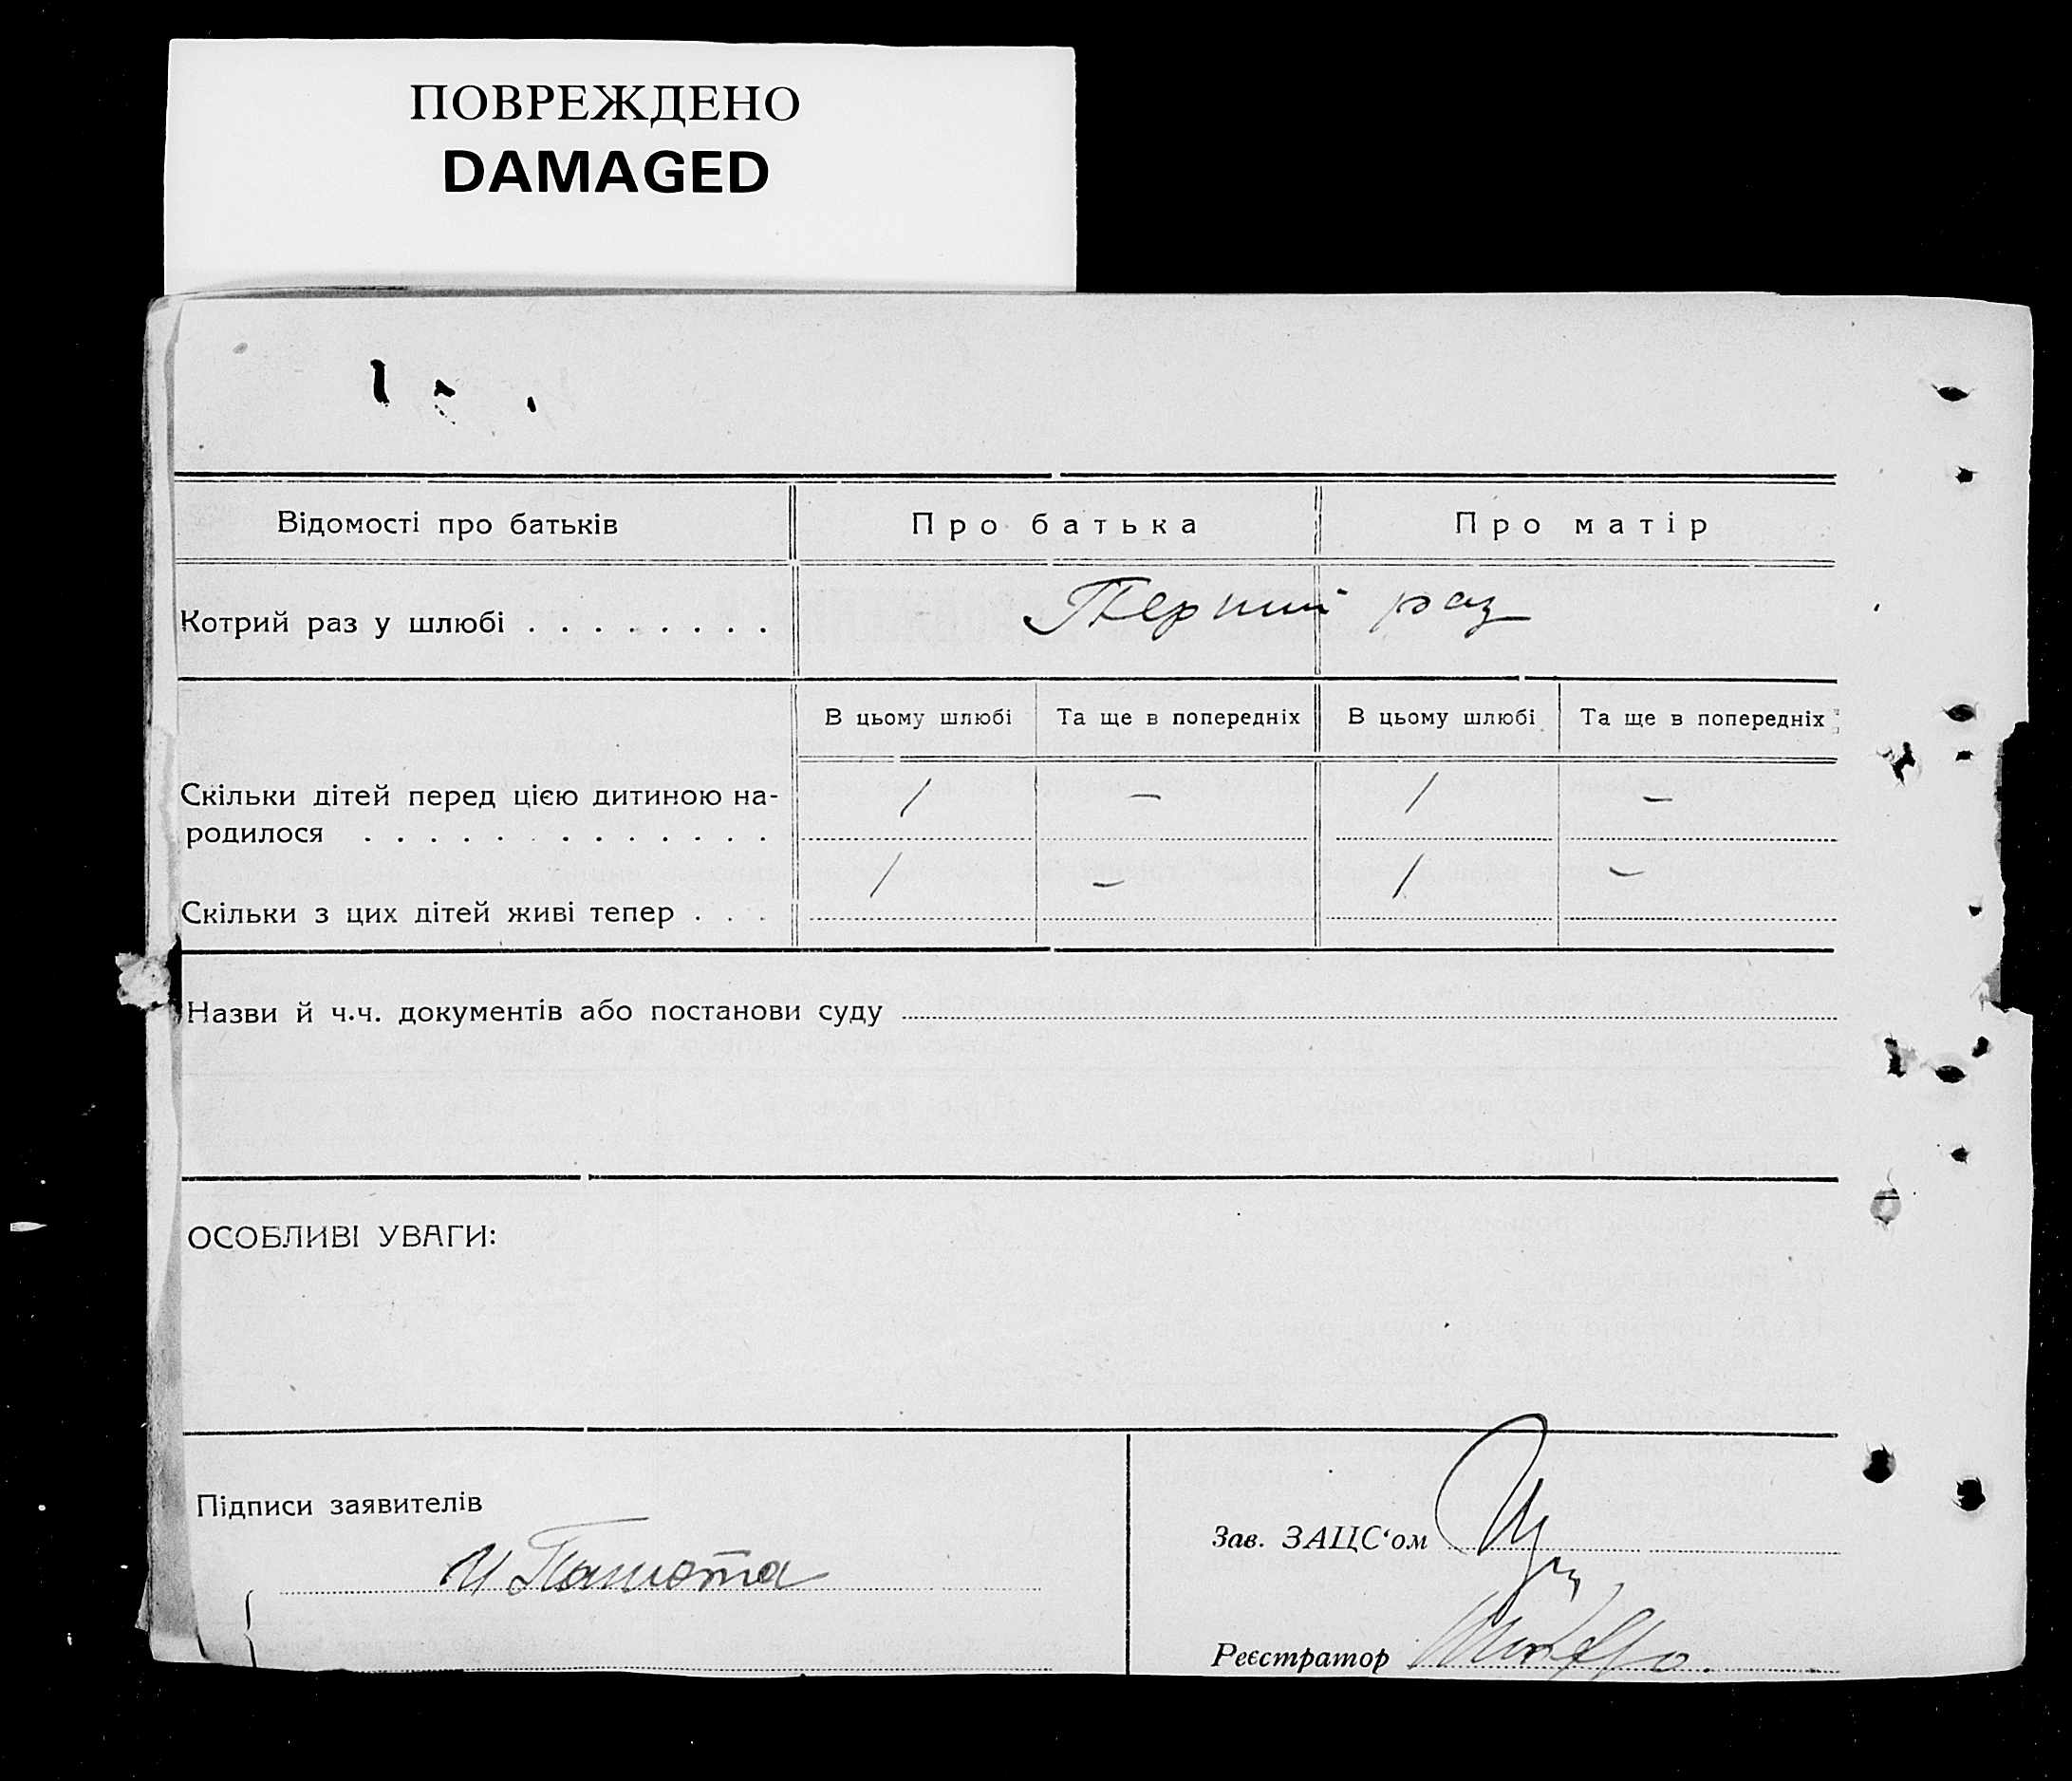 ПОВРЕЖДЕНО
DAMAGED
Відомості про батьків
Про батька
Про матір
Котрий раз у шлюбі . . . . . . . .
Перший раз
В цьому шлюбі
Та ще в попередніх
В цьому шлюбі
Та ще в попередніх
Скільки дітей перед цією дитиною на-
родилося . . . . . . . . . . . . .
/ – / –
Скільки з цих дітей живі тепер . . .
/ – / –
Назви й ч.ч. документів або постанови суду
ОСОБЛИВІ УВАГИ:
Підписи заявителів
Зав. ЗАЦС‘ом
Реєстратор